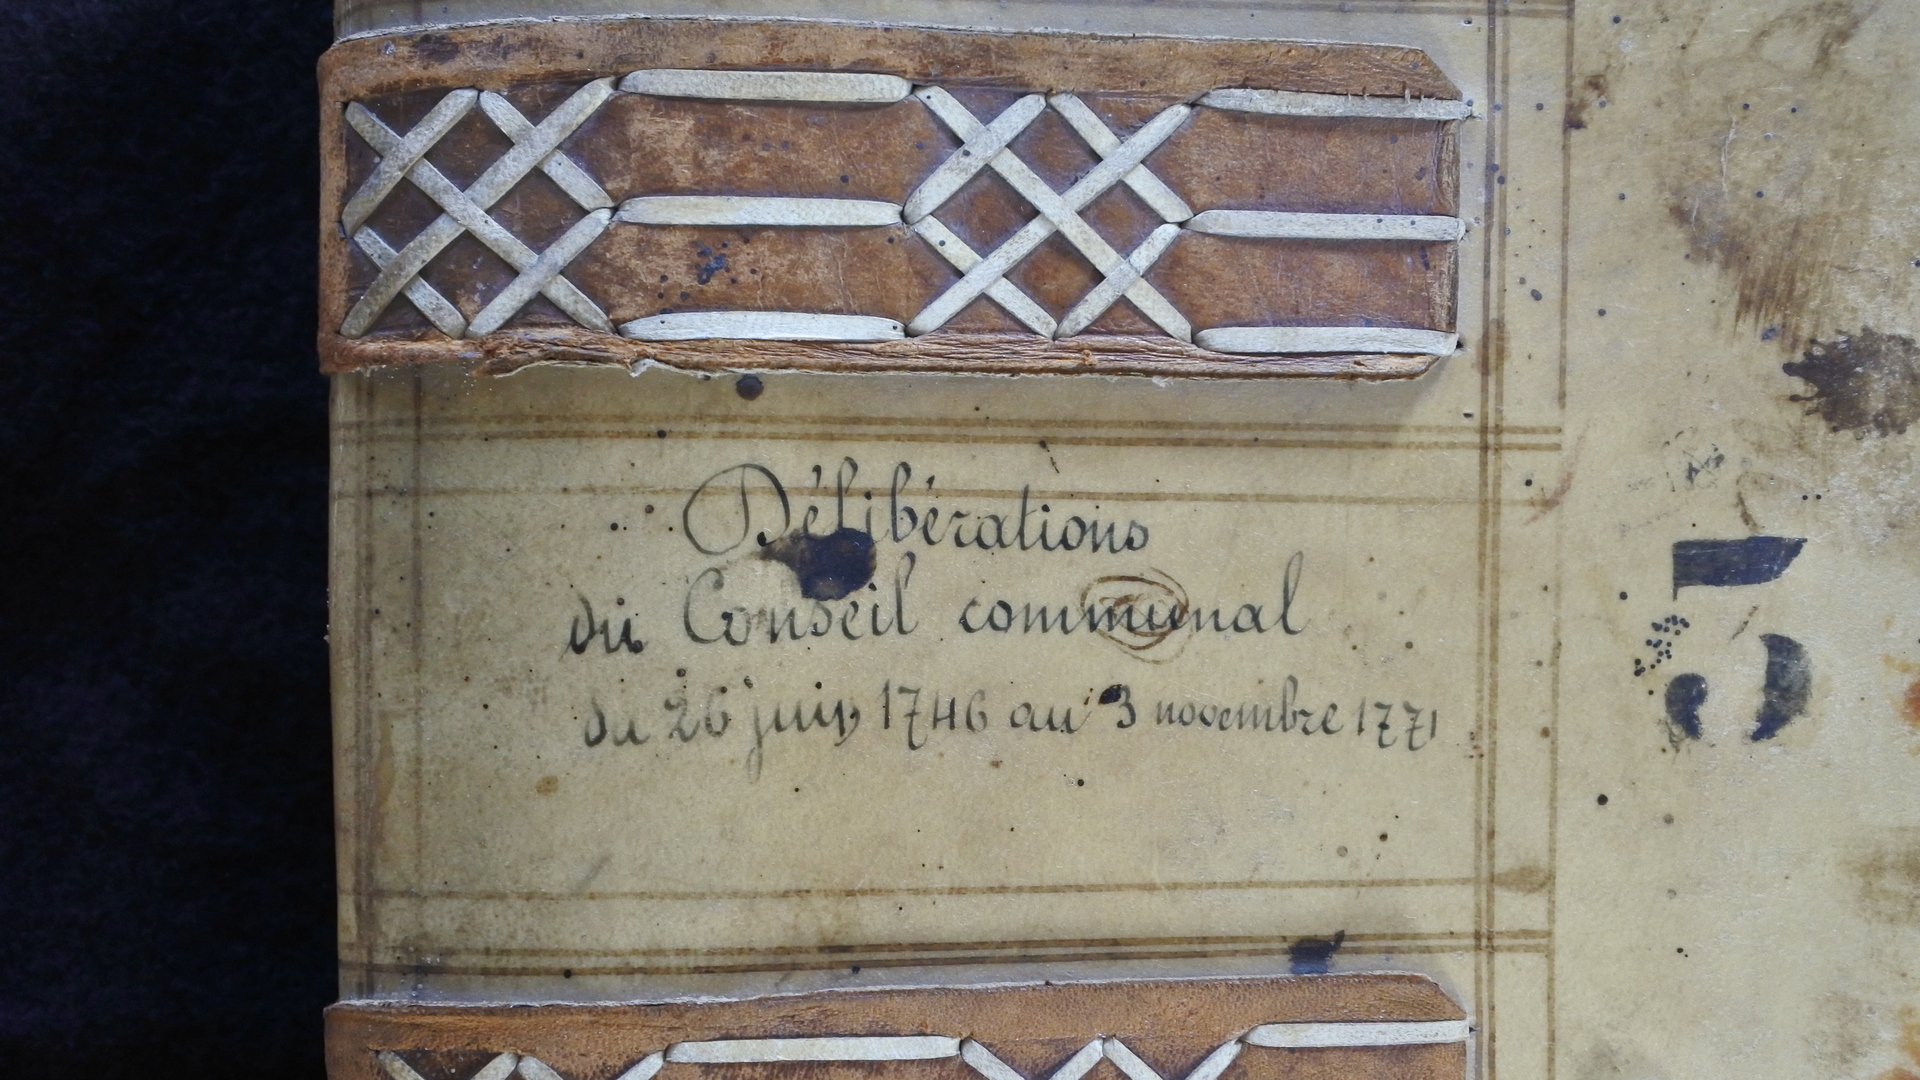 Délibérations
du Conseil communal
du 26 juin 1746 au 3 novembre 1771
5